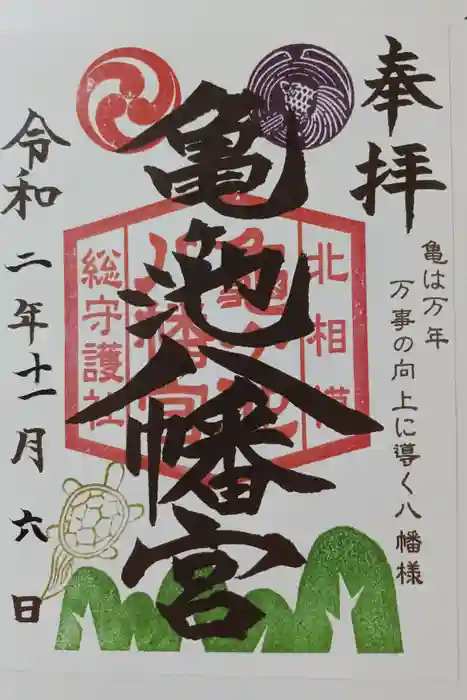 奉拝
亀は万年
万事の向上に導く八幡様
北相模
亀ヶ池
八幡宮
総守護社
亀池八幡宮
令和二年十一月六日